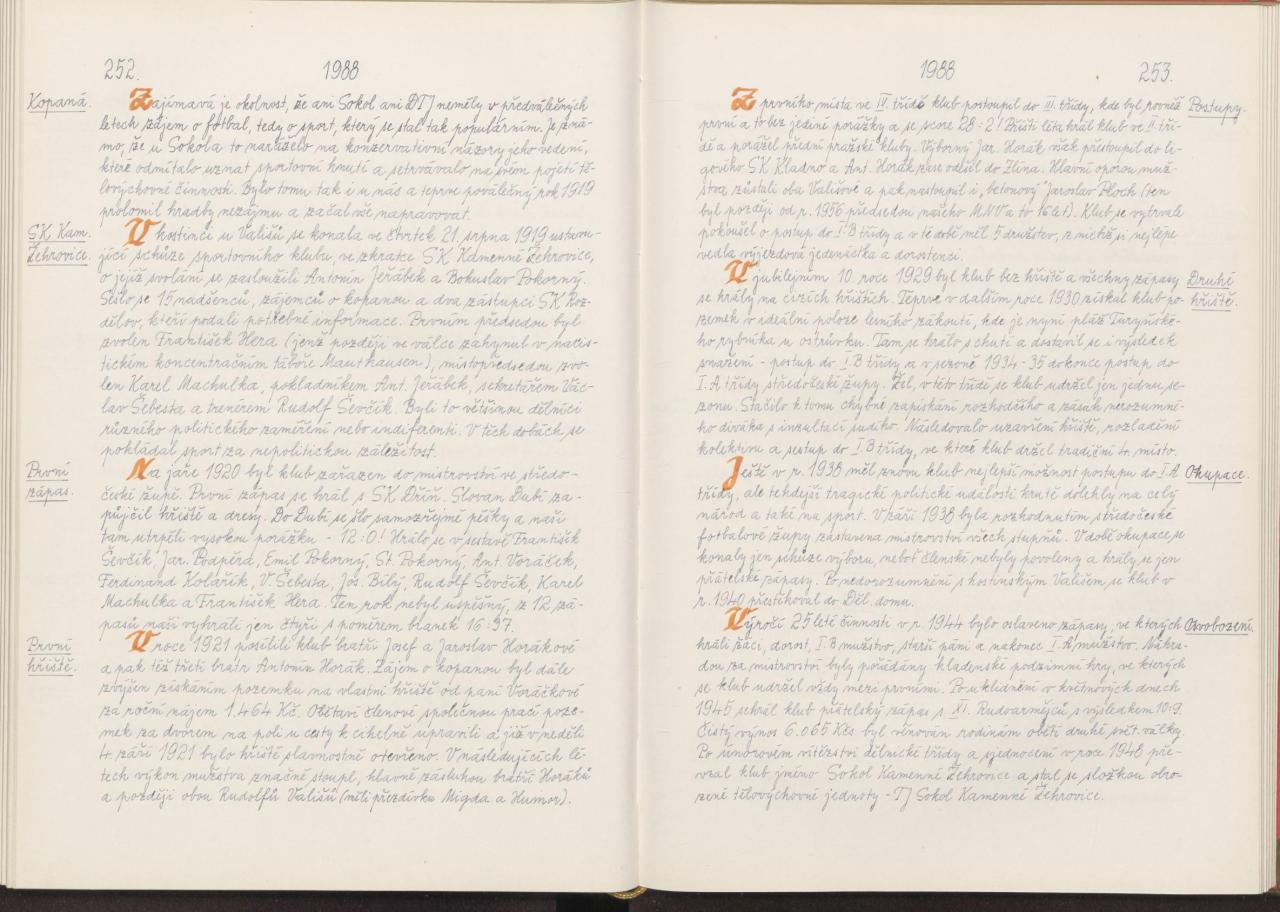 252.
1988
Kopaná.
Zajímavá je okolnost, že ani Sokol ani DTJ neměly v předválečných
letech zájem o fotbal, tedy o sport, který se stal tak populárním. Je zná-
mo, že u Sokola to naráželo na konzervativní názory jeho vedení,
které odmítalo uznat sportovní hnutí a setrvávalo na svém pojetí tě-
lovýchovné činnosti. Bylo tomu tak i u nás a teprve poválečný rok 1919
prolomil hradby nezájmu a začal vše napravovat.
SK Kam.
Žehrovice.
V hostinci u Vališů se konala ve čtvrtek 21. srpna 1919 ustavu-
jící schůze sportovního klubu, ve zkratce SK Kamenné Žehrovice,
o jejíž svolání se zasloužili Antonín Jeřábek a Bohuslav Pokorný.
Sešlo se 15 nadšenců, zájemců o kopanou a dva zástupci SK Roz-
dělov, kteří podali potřebné informace. Prvním předsedou byl
zvolen František Hera (jenž později ve válce zahynul v nacis-
tickém koncentračním táboře Mauthausen), místopředsedou zvo-
len Karel Machulka, pokladníkem Ant. Jeřábek, sekretářem Vác-
lav Šebesta a trenérem Rudolf Ševčík. Byli to většinou dělníci
různého politického zaměření nebo indiferenti. V těch dobách se
pokládal sport za nepolitickou záležitost.
První
zápas.
Na jaře 1920 byl klub zařazen do mistrovství ve středo-
české župě. První zápas se hrál s SK Dříň. Slovan Dubí za-
půjčil hřiště a dresy. Do Dubí se šlo samozřejmě pěšky a naši
tam utrpěli vysokou porážku - 12:0! Hrálo se v sestavě František
Ševčík, Jar. Podpěra, Emil Pokorný, St. Pokorný, Ant. Voráček,
Ferdinand Kolařík, V. Šebesta, Jos. Bílý, Rudolf Ševčík, Karel
Machulka a František Hera. Ten rok nebyl úspěšný, z 12 zá-
pasů naši vyhráli jen čtyři s poměrem branek 16:37.
První
hřiště.
V roce 1921 posílili klub bratři Josef a Jaroslav Horákové
a pak též třetí bratr Antonín Horák. Zájem o kopanou byl dále
zvýšen získáním pozemku na vlastní hřiště od paní Voráčkové
za roční nájem 1.464 Kč. Obětaví členové společnou prací poze-
mek za dvorem na poli u cesty k cihelně upravili a již v neděli
4. září 1921 bylo hřiště slavnostně otevřeno. V následujících lé-
tech výkon mužstva značně stoupl, hlavně zásluhou bratří Horáků
a později obou Rudolfů Vališů (měli přezdívku Migda a Humor).
1988
253.
Z prvního místa ve IV. třídě klub postoupil do III. třídy, kde byl rovněž
Postupy.
první a to bez jediné porážky a se score 28:2! Příští léta hrál klub ve II. tří-
dě a porážel přední pražské kluby. Výborný Jar. Horák však přestoupil do li-
gového SK Kladno a Ant. Horák zase odešel do Zlína. Hlavní oporou muž-
stva zůstali oba Vališové a pak nastoupil i „betonový" Jaroslav Ploch (ten
byl později od r. 1956 předsedou našeho MNV a to 16 let). Klub se vytrvale
pokoušel o postup do I.B třídy a v té době měl 5 družstev, z nichž si nejlépe
vedla výjezdová jedenáctka a dorostenci.
V jubilejním 10. roce 1929 byl klub bez hřiště a všechny zápasy
Druhé
hřiště.
se hrály na cizích hřištích. Teprve v dalším roce 1930 získal klub po-
zemek v ideální poloze lesního zákoutí, kde je nyní pláž Turyňské-
ho rybníka u ostrůvku. Tam se hrálo s chutí a dostavil se i výsledek
snažení - postup do I.B třídy a v sezoně 1934-35 dokonce postup do
I.A třídy středočeské župy. Žel, v této třídě se klub udržel jen jednu se-
zonu. Stačilo k tomu chybné zapískání rozhodčího a zásah nerozumné-
ho diváka s insultací sudího. Následovalo uzavření hřiště, rozladění
kolektivu a sestup do I.B třídy, ve které klub držel tradiční 4. místo.
Ještě v r. 1938 měl znovu klub nejlepší možnost postupu do I.A
Okupace.
třídy, ale tehdejší tragické politické události krutě dolehly na celý
národ a také na sport. V září 1938 byla rozhodnutím středočeské
fotbalové župy zastavena mistrovství všech stupňů. V době okupace se
konaly jen schůze výboru, neboť členské nebyly povoleny a hrály se jen
přátelské zápasy. Po nedorozumění s hostinským Vališem se klub v
r. 1940 přestěhoval do Děl. domu.
Výročí 25 leté činnosti v r. 1944 bylo oslaveno zápasy, ve kterých
Osvobození.
hráli žáci, dorost, I.B mužstvo, starší páni a nakonec I.A mužstvo. Náhra-
dou za mistrovství byly pořádány kladenské podzimní hry, ve kterých
se klub udržel vždy mezi prvními. Po uklidnění v květnových dnech
1945 sehrál klub přátelský zápas s XI. Rudoarmějců s výsledkem 10:9.
Čistý výnos 6.065 Kčs byl věnován rodinám obětí druhé svět. války.
Po únorovém vítězství dělnické třídy a sjednocení v roce 1948 pře-
vzal klub jméno Sokol Kamenné Žehrovice a stal se složkou obro-
zené tělovýchovné jednoty - TJ Sokol Kamenné Žehrovice.